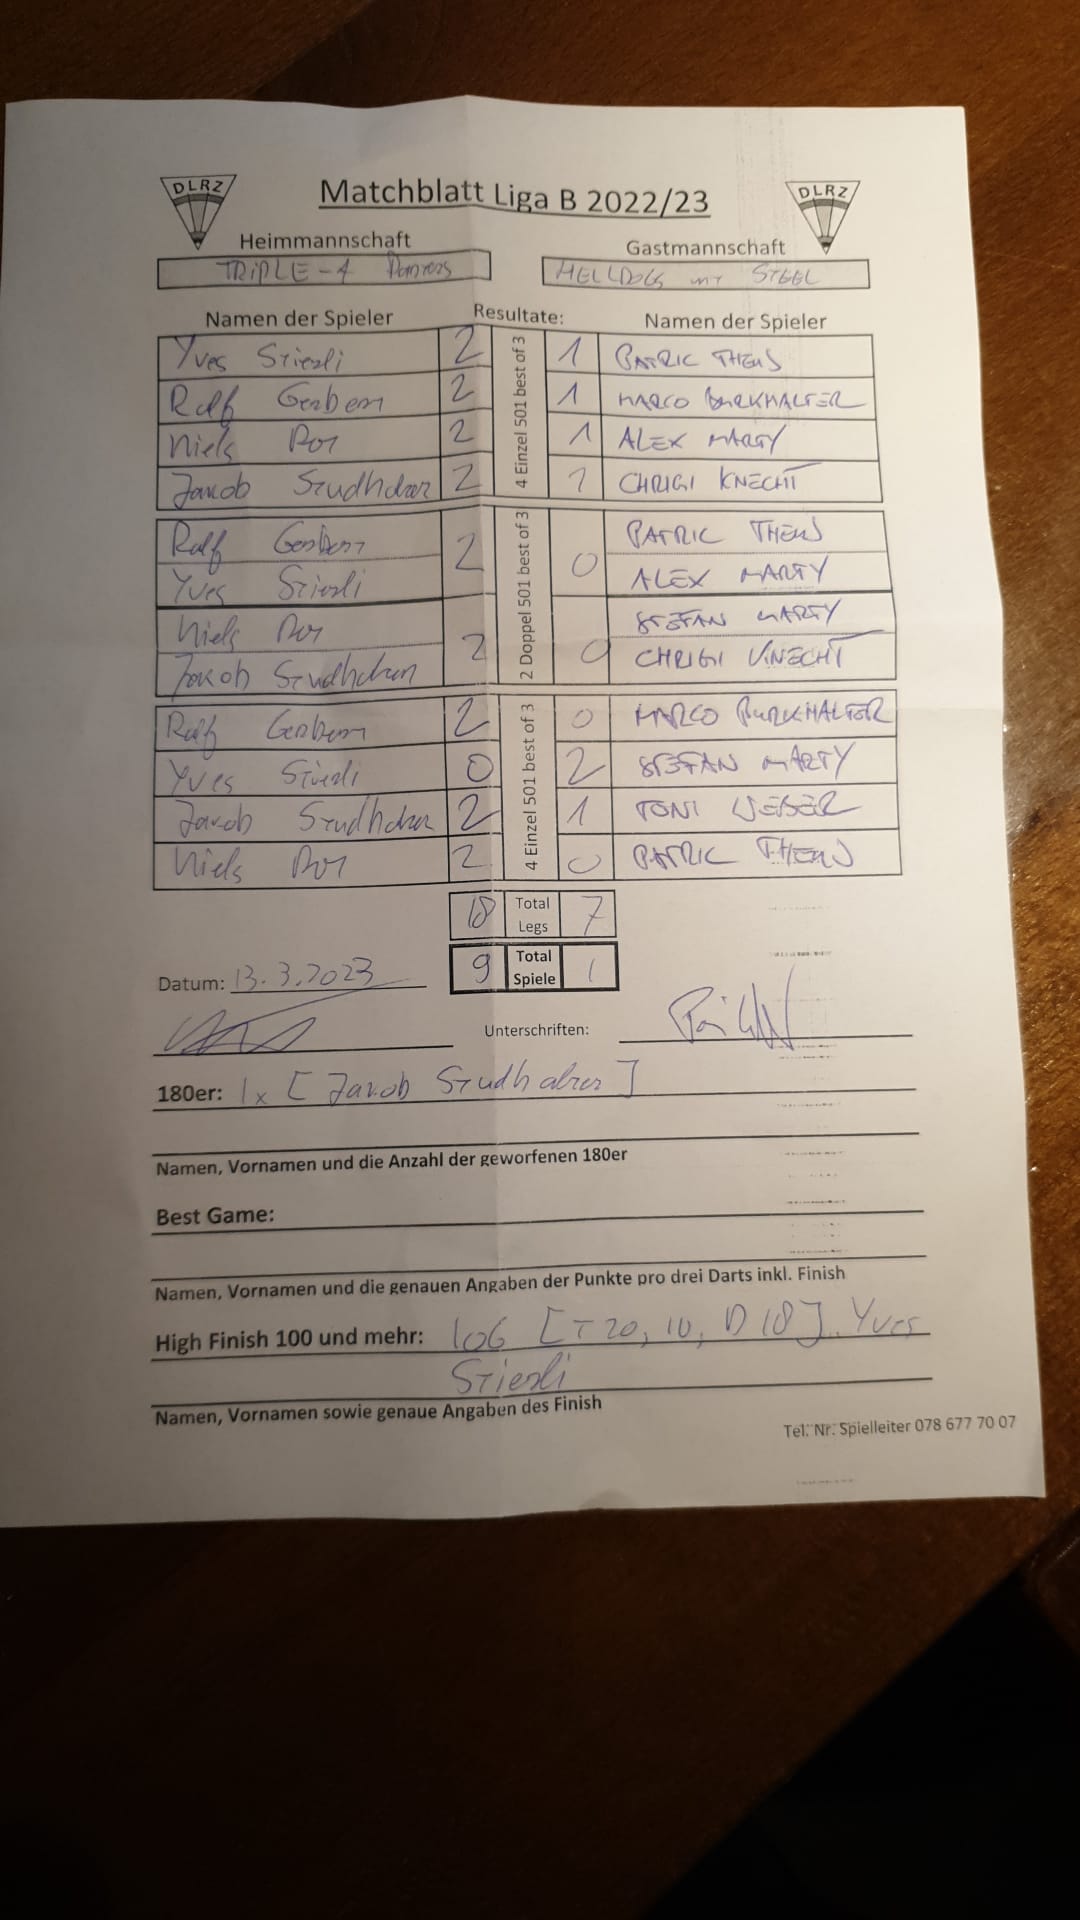 DLRZ Matchblatt Liga B 2022/23 DLRZ
Heimmannschaft Gastmannschaft
TRIPLE-4 HELLDOGS mt STEEL
Namen der Spieler Resultate: Namen der Spieler
Yves Stierli 2 1 PATRIC THEUS
Ralf Gerbern 2 1 MARCO BURKHALTER
Niels Por 2 1 ALEX MARTY
Jakob Studhalter 2 1 CHRIGI KNECHT
4 Einzel 501 best of 3
Ralf Gerbern 2 0 PATRIC THEUS
Yves Stierli ALEX MARTY
Niels Por 2 0 STEFAN MARTY
Jakob Studhalter CHRIGI KNECHT
2 Doppel 501 best of 3
Ralf Gerbern 2 0 MARCO BURKHALTER
Yves Stierli 0 2 STEFAN MARTY
Jakob Studhalter 2 1 TONI WEBER
Niels Por 2 0 PATRIC THEUS
4 Einzel 501 best of 3
18 Total Legs 7
9 Total Spiele 1
Datum: 13.3.2023
Unterschriften:
180er: 1x [Jakob Studhalter]
Namen, Vornamen und die Anzahl der geworfenen 180er
Best Game:
Namen, Vornamen und die genauen Angaben der Punkte pro drei Darts inkl. Finish
High Finish 100 und mehr: 106 [T20, 10, D18] Yves
Stierli
Namen, Vornamen sowie genaue Angaben des Finish
Tel. Nr. Spielleiter 078 677 70 07